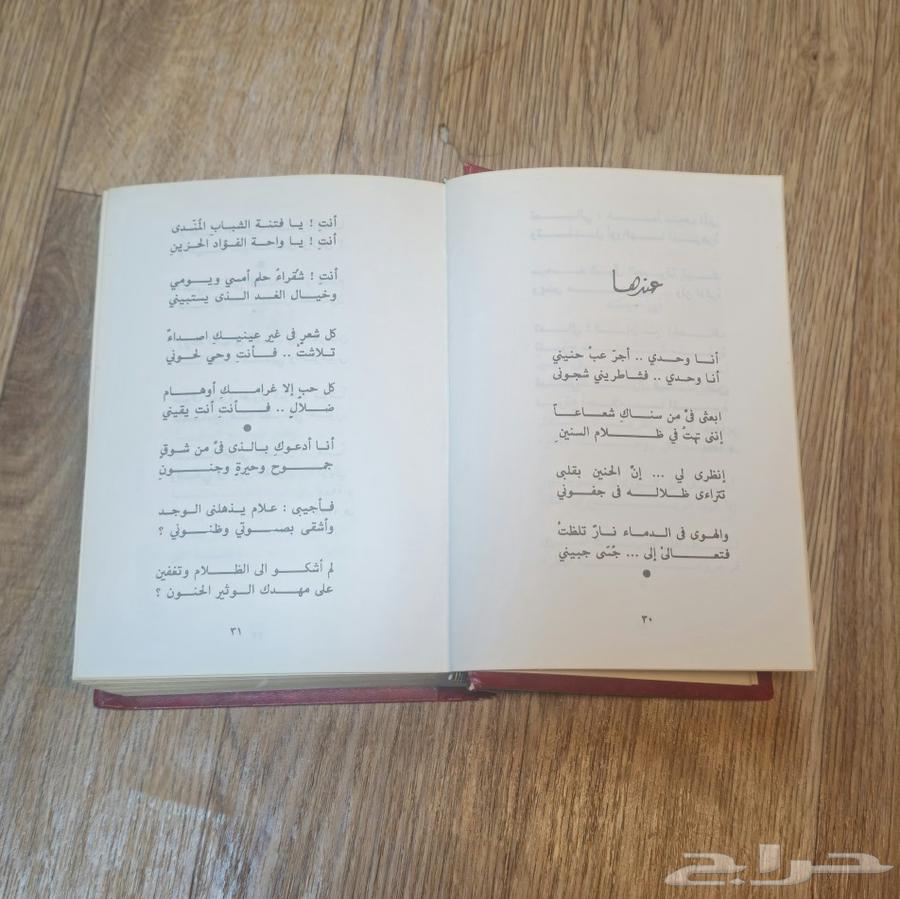 عندها
أنا وحدي .. أجرّ عبْ حنيني
أنا وحدي .. فشاطريني شجونى
ابعثى فىَّ من سناكِ شعاعاً
إننى تهتُ في ظلام السنينِ
إنظرى لي ... إنَّ الحنين بقلبى
تتراءى ظلاله فى جفوني
والهوى فى الدماء نارٌ تلظتْ
فتعالىْ إلى ... جُسّى جبيني
٣٠
أنتِ ! يا فتنة الشبابِ المُندى
أنتِ ! يا واحة الفؤاد الحزينِ
أنتِ ! شقراءُ حلم أمسي ويومي
وخيال الغد الذى يستبيني
كل شعرٍ فى غير عينيكِ اصداءٌ
تلاشتْ .. فأنتِ وحي لحوني
كل حبٍ إلا غرامكِ أوهام
ضلالٍ .. فأنتِ أنتِ يقيني
أنا أدعوكِ بالذى فىَّ من شوقٍ
جموح وحيرةٍ وجنونِ
فأجيبى : علام يذهلنى الوجد
وأشقى بصوتي وظنوني ؟
لم أشكو الى الظلام وتغفين
على مهدك الوثير الحنون ؟
٣١
حراج